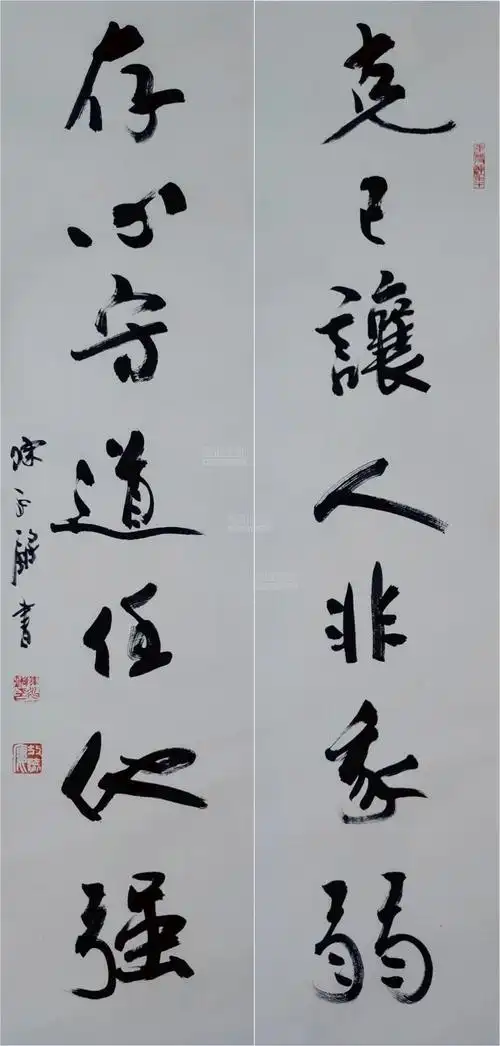 克己讓人非我弱
存心守道任他强
書